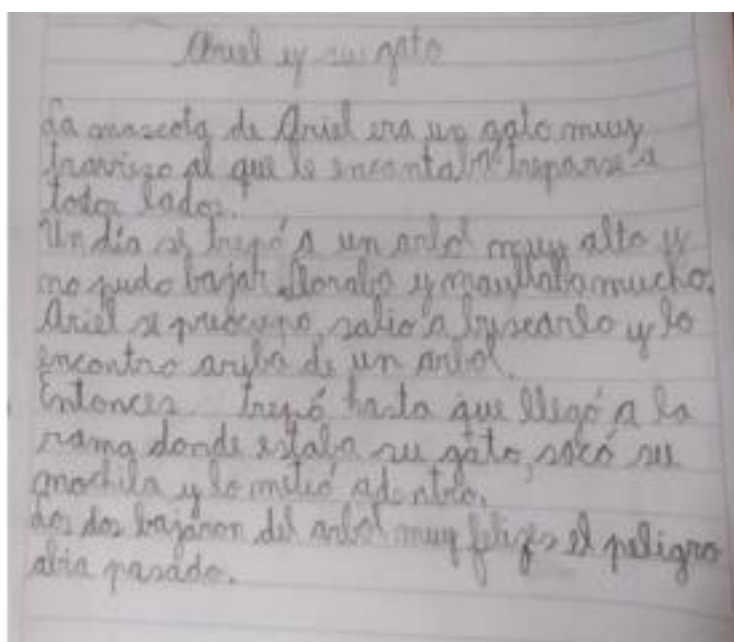 Ariel y su gato
La mascota de Ariel era un gato muy
traviezo al que le encantaba treparse a
todos lados.
Un día se trepó a un arbol muy alto y
no pudo bajar. lloraba y maullaba mucho.
Ariel se preocupo, salio a buscarlo y lo
encontro ariba de un arbol.
Entonces trepó hasta que llegó a la
rama donde estaba su gato, sacó su
mochila y lo metió adentro.
Los dos bajaron del arbol muy felizes el peligro
abia pasado.